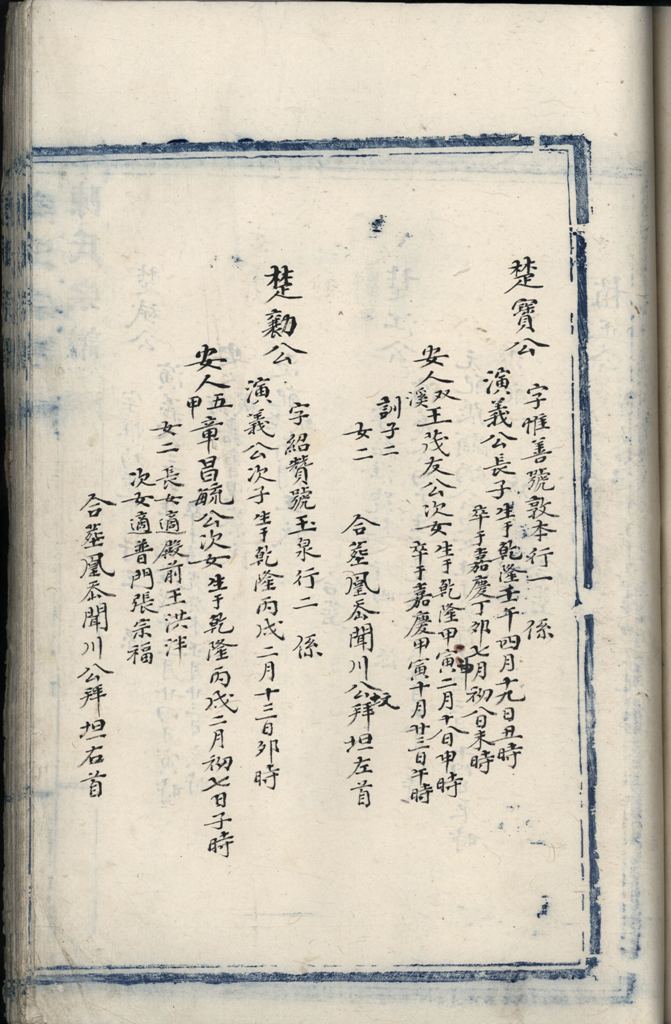 楚寶公
字惟善號敦本行一 係
演義公長子生于乾隆壬午四月十九日丑時
卒于嘉慶丁卯七月初八日未時
安人雙溪王茂友公次女生于乾隆甲寅二月十八日申時
卒于嘉慶甲寅十月廿三日午時
訓子二
女二
合塟凰岙聞川公坟拜坦左首
楚勷公
字紹贊號玉泉行二 係
演義公次子生于乾隆丙戌二月十三日卯時
安人五甲章昌毓公次女生于乾隆丙戌二月初七日子時
女二長女適殿前王洪泮
次女適普門張宗福
合塟凰岙聞川公拜坦右首